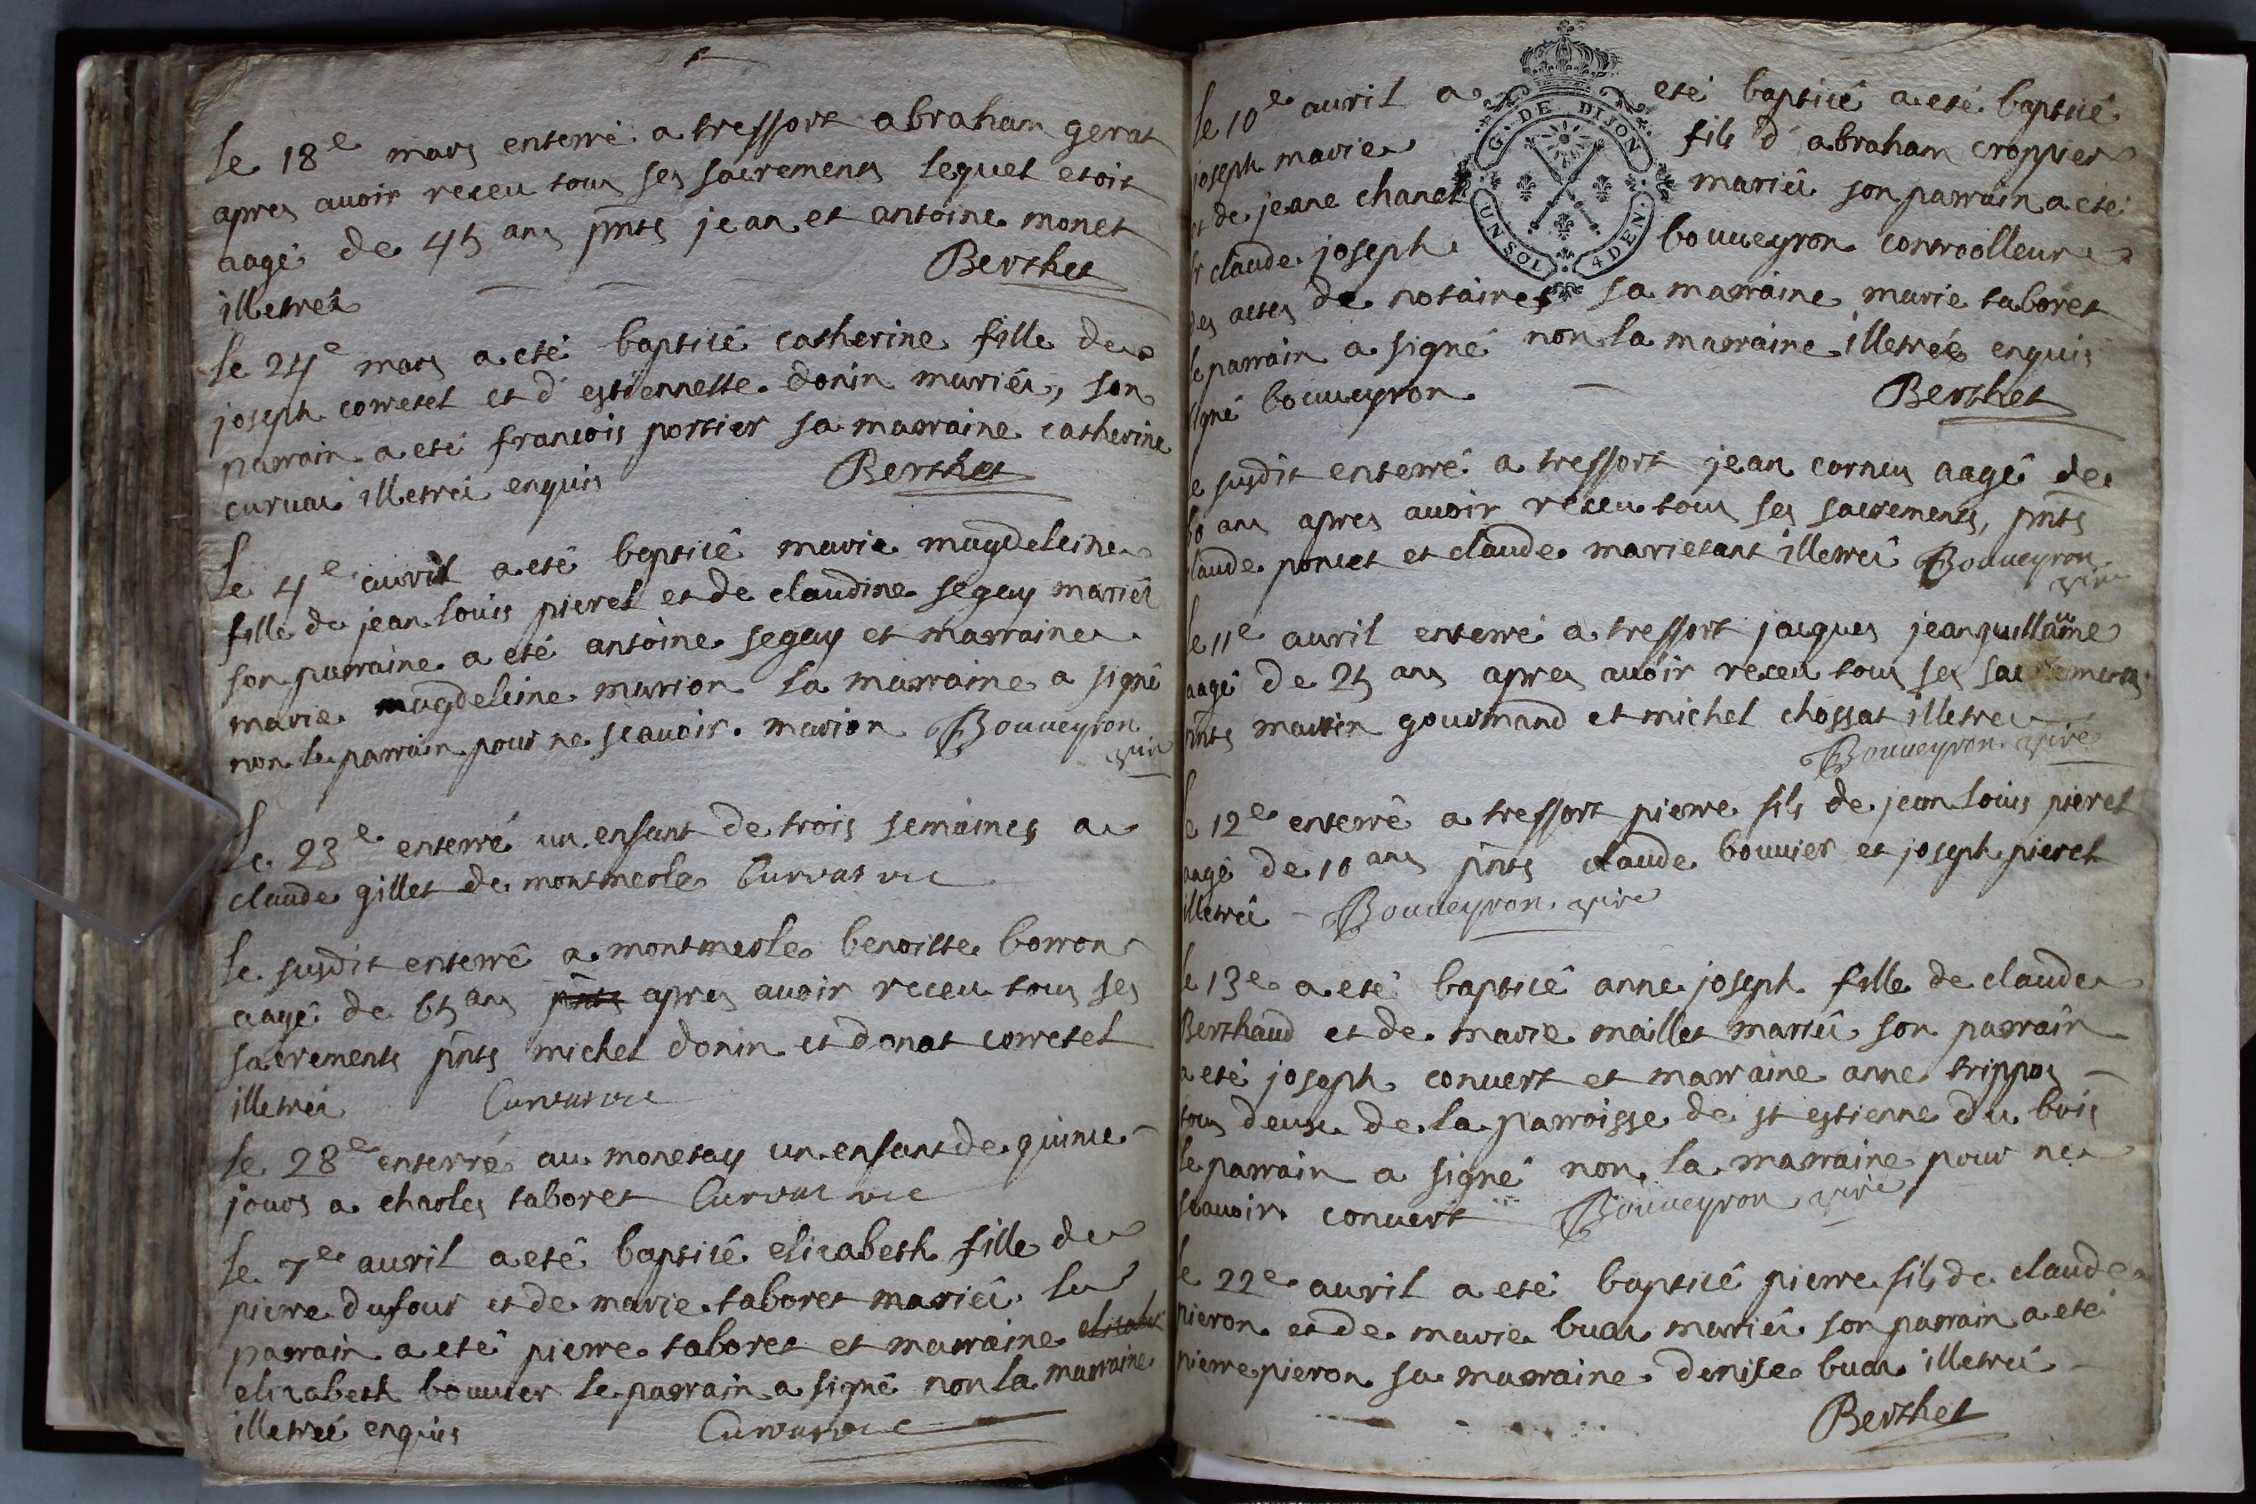 le 18e mars enterré a tressort abraham gerat
apres avoir receu tous ses sacrements lequel etoit
aagé de 45 ans pnts jean et antoine monet
illetrés
Berthet
le 24e mars a eté baptisé catherine fille de
joseph corretel et d'estiennette donin mariés, son
parrain a eté francois portier sa marraine catherine
curvat illetrés enquis
Berthet
Le 4e avril a eté baptisé marie magdeleine
fille de jean louis pieret et de claudine seguy mariés
son parraine a eté antoine seguy et marraine
marie magdeleine marion la marraine a signé
non le parrain pour ne scavoir. marion Bouveyron
vire
Le 23e enterré un enfant de trois semaines a
claude gillet de montmerle Curvat vic
le susdit enterré a montmerle benoitte borron
aagé de 65 ans pnts apres avoir receu tous ses
sacrements pnts michel donin et donat corretel
illetrés Curvat vic
le 28e enterré au monetay un enfant de quinse
jours a charles taboret Curvat vic
le 7e avril a eté baptisé elisabeth fille de
pierre dufour et de marie taboret mariés le
parrain a eté pierre taboret et marraine elisabet
elisabeth bouvier le parrain a signé non la marraine
illetrée enquis Curvat vic
le 10e avril a eté baptisé a eté baptisé
joseph marie fils d'abraham croppier
et de jeane chanel mariés son parrain a eté
sr claude joseph bouveyron controolleur
des actes de notaires sa marraine marie taboret
le parrain a signé non la marraine illetrée enquis
signé bouveyron
Berthet
G. DE DIJON
UN SOL 4 DEN.
le susdit enterré a tressort jean cornu aagé de
60 ans apres avoir receu tous ses sacrements, pnts
claude poncet et claude marietant illetrés Bouveyron
vire
le 11e avril enterré a tressort jacques jeanguillaume
aagé de 25 ans apres avoir receu tous ses sacrements
pnts martin gourmand et michel chossat illetrés
Bouveyron vire
le 12e enterré a tressort pierre fils de jean louis pieret
aagé de 10 ans pnts claude bouvier et joseph pieret
illetrés Bouveyron vire
le 13e a eté baptisé anne joseph fille de claude
Berthaud et de marie maillet mariés son parrain
a eté joseph convert et marraine anne trippoz
tous deux de la parroisse de st estienne du bois
le parrain a signé non la marraine pour ne
scavoir. convert Bouveyron vire
le 22e avril a eté baptisé pierre fils de claude
pieron et de marie buat mariés son parrain a eté
pierre pieron sa marraine denise buat illetrés
Berthet